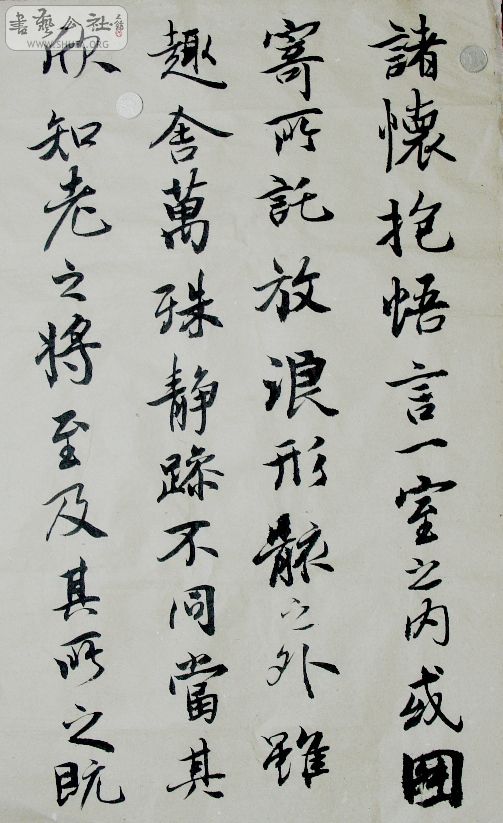 書藝公社
www.SHUFA.ORG
諸懷抱悟言一室之内或因
寄所託放浪形骸之外雖
趣舍萬殊静躁不同當其
欣知老之將至及其所之既